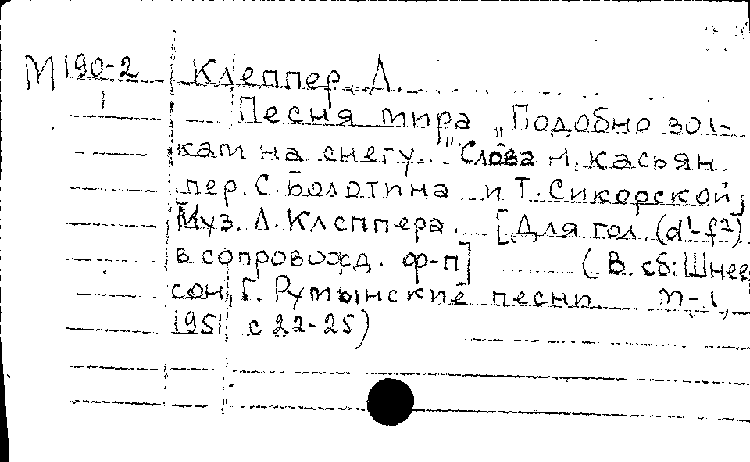 М 190-2 Клеппер, Л.
1 Песня мира „Подобно зол-
кам на снегу..." Слова М. Касьян.
пер. С. Болотина и Т. Сикорской,
Муз. Л. Клеппера. [Для гол. (d¹-f²)
в сопровожд. ф-п] (В. сб: Шнеер
сон, Г. Румынские песни М-Л,
1951 с 22-25)